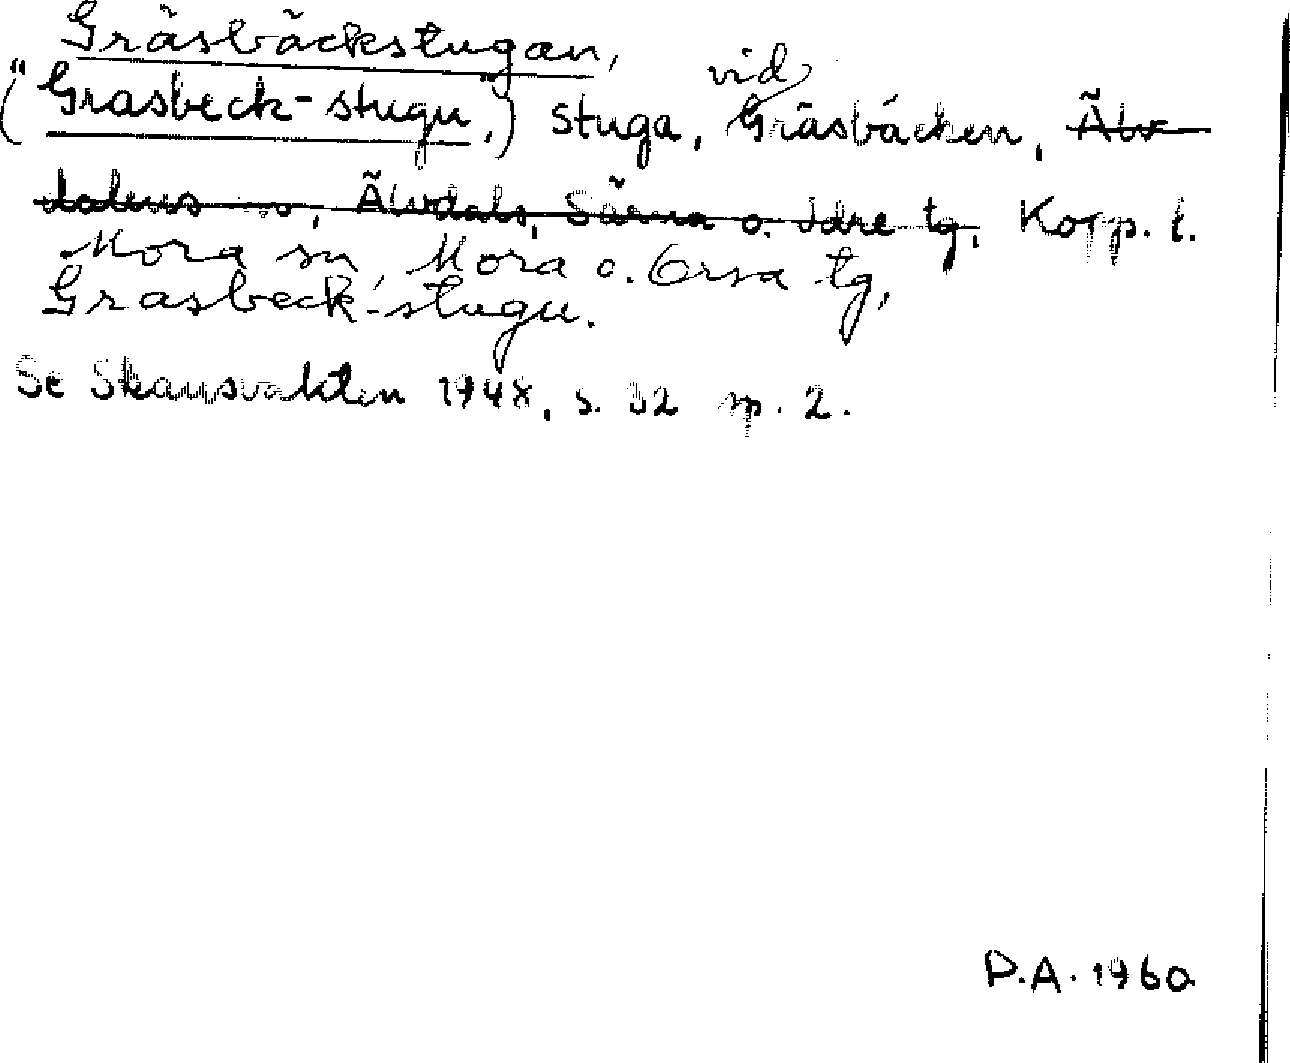 Gräsbäckstugan,
("Grasbeck-stugu",) stuga, vid Gräsbäcken, Älv-
dalens sn, Älvdals, Särna o. Idre tg, Kopp. l.
Mora sn, Mora o. Orsa tg,
Grasbeck-stugu.
Se Skansvakten 1948, s. 32 sp. 2.
D.A. 1960